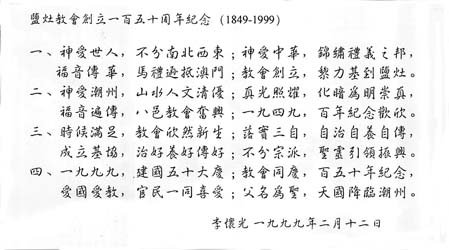 鹽灶教會創立一百五十周年紀念（1849-1999）
一、神愛世人，不分南北西東；神愛中華，錦繡禮義之邦，
福音傳華，馬禮遜抵澳門；教會創立，黎力基到鹽灶。
二、神愛潮州，山水人文清優；真光照耀，化暗為明崇真，
福音遍傳，八邑教會奮興；一九四九，百年紀念歡欣。
三、時候滿足，教會欣然新生；落實三自，自治自養自傳，
成立基協，治好養好傳好；不分宗派，聖靈引領振興。
四、一九九九，建國五十大慶；教會同慶，百五十年紀念，
愛國愛教，官民一同喜愛；父名為聖，天國降臨潮州。
李懷光 一九九九年二月十二日